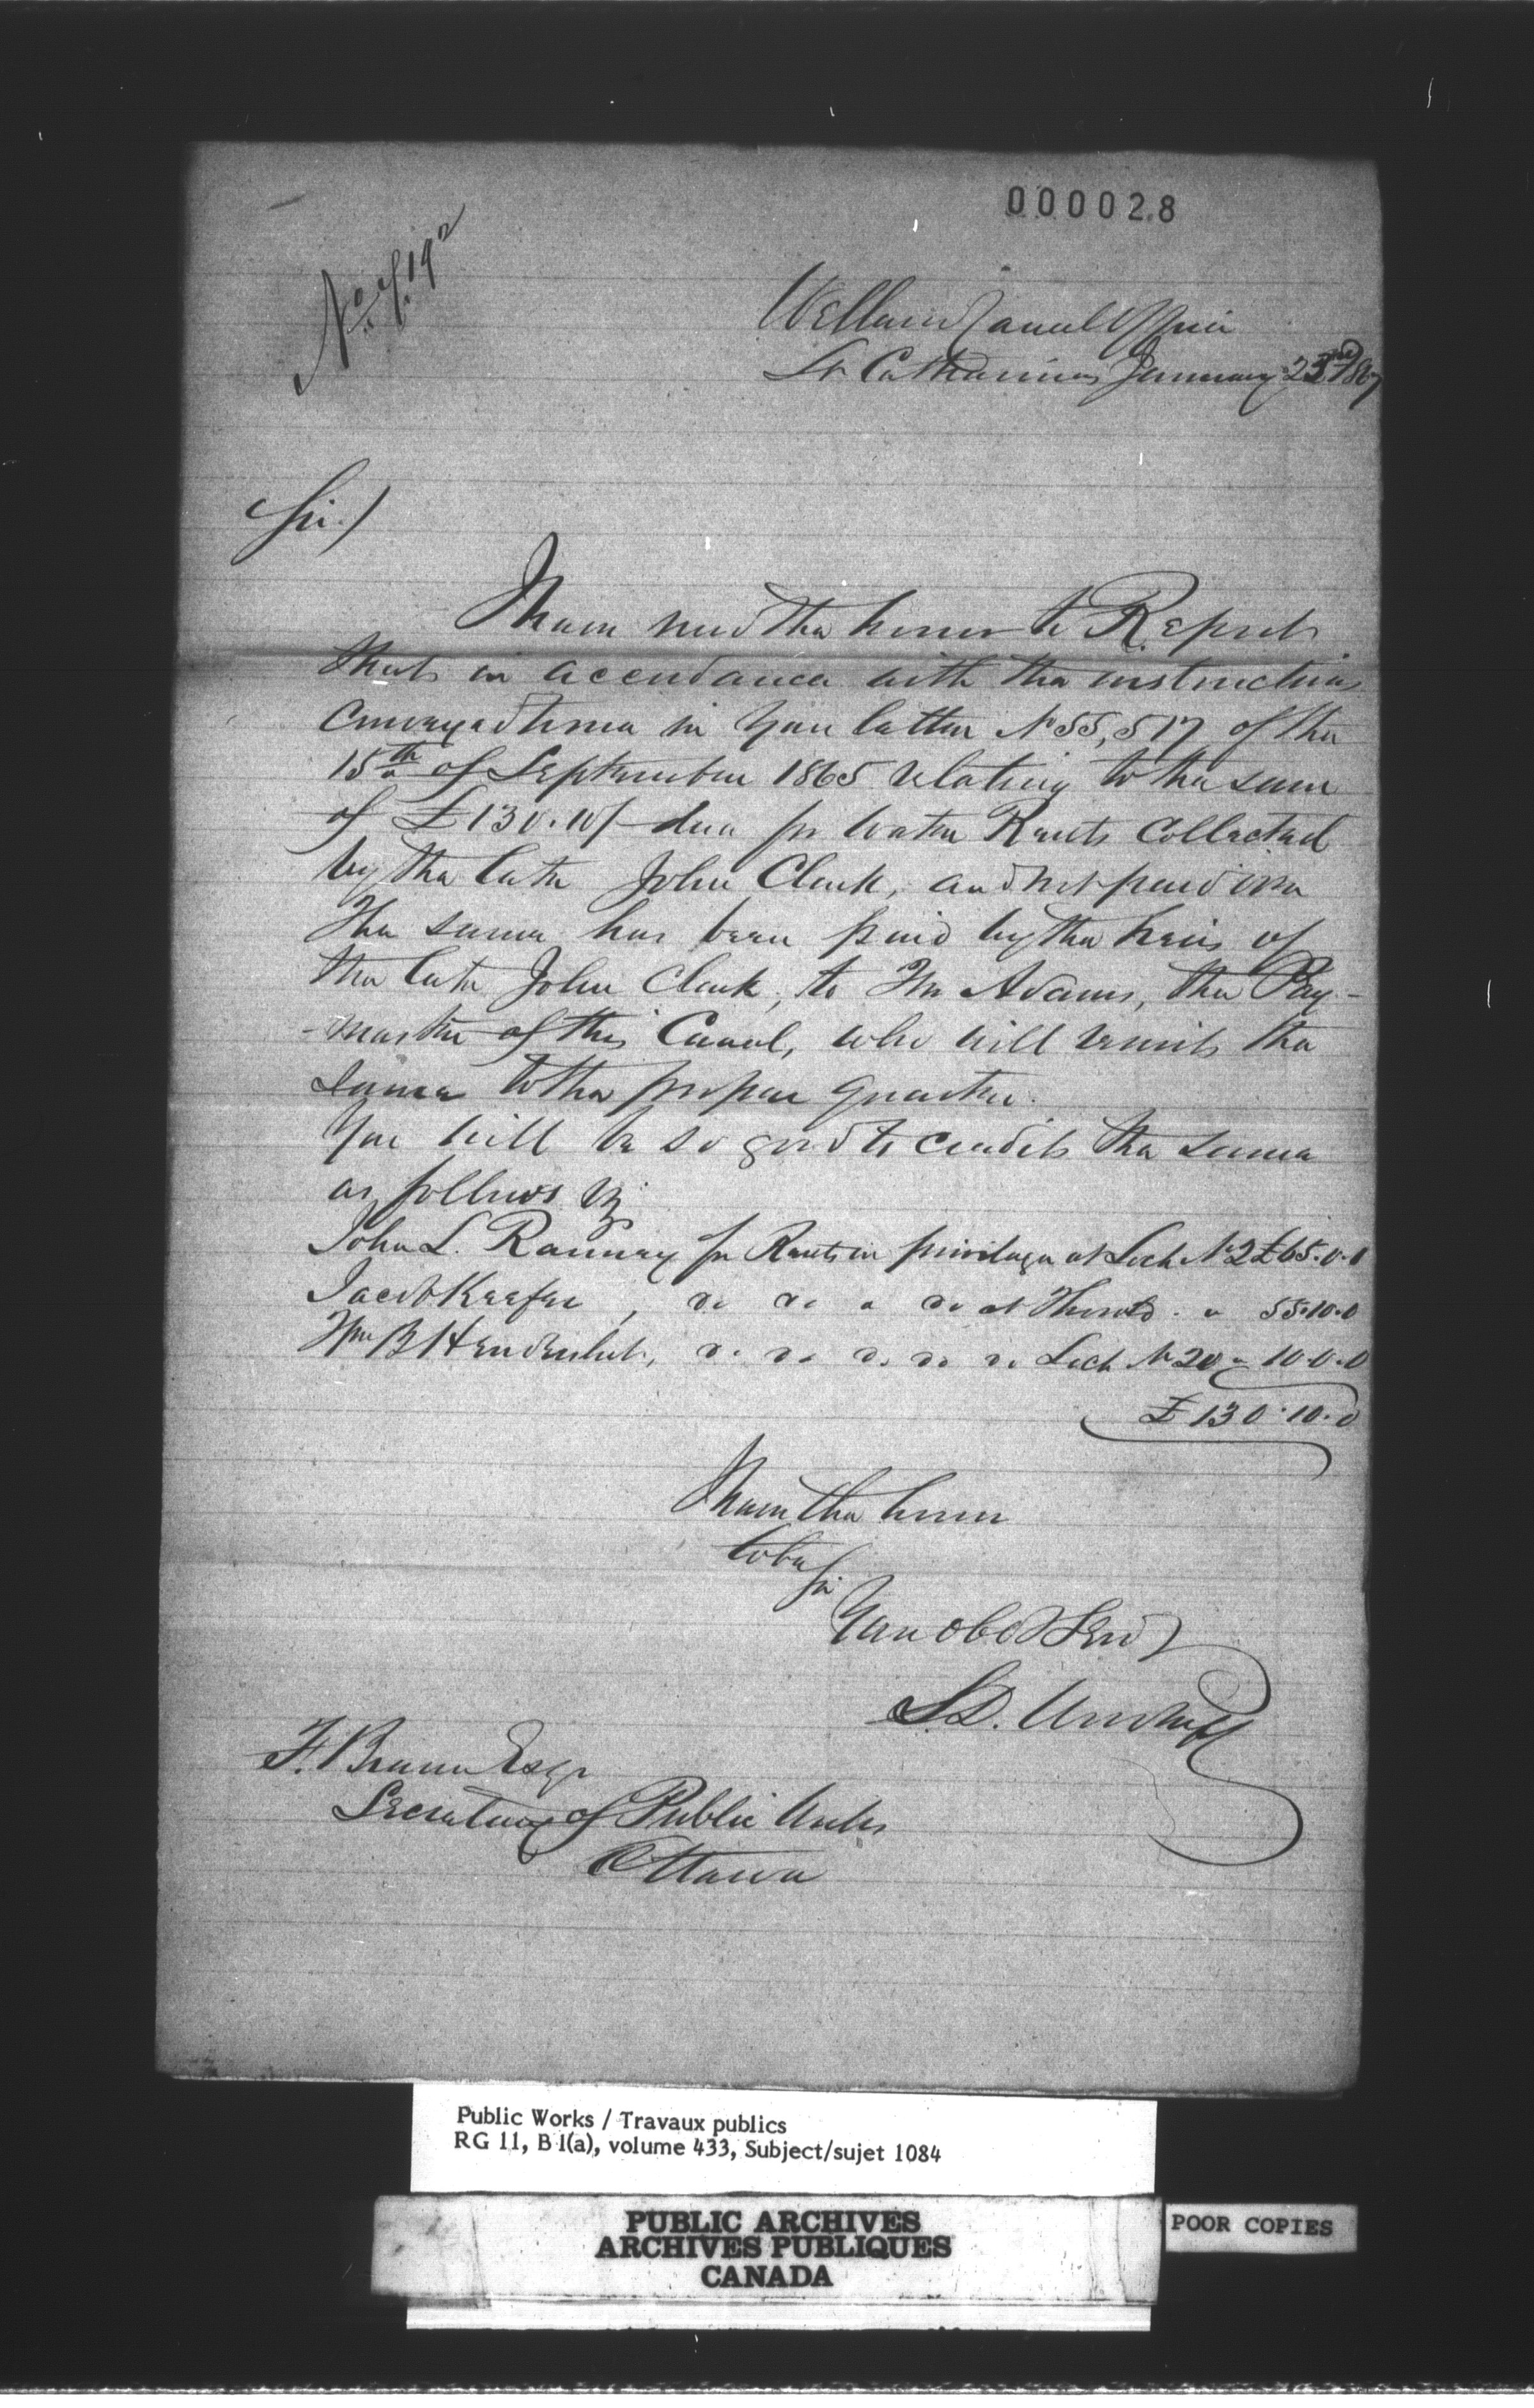 000028
Welland Canal Office
St Catharines January 23rd 1867
Sir/
I have now the honor to Report
that in accordance with the instructions
conveyed to me in your letter No 55,517 of the
15th of September 1865 relating to the sum
of £130.10/- due for Water Rents collected
by the late John Clark, and not paid over
The same has been paid by the heirs of
the late John Clark, to Mr Adams, the Pay-
-master of this Canal, who will remit the
same to the proper quarter.
You will be so good to credit the same
as follows viz
John L. Ranney for Rents on privilege at Lock No 2 £65.0.0
Jacob Keefer, do do " do at Thorold " 55.10.0
Wm B Hendershot, do do do do do Lock No 20 " 10.0.0
£130.10.0
I have the honor
to be
Sir
Your obdt Servt
S.D. Woodruff
F. Braun Esqr
Secretary of Public Works
Ottawa
Public Works / Travaux publics
RG 11, B 1(a), volume 433, Subject/sujet 1084
PUBLIC ARCHIVES
ARCHIVES PUBLIQUES
CANADA
POOR COPIES